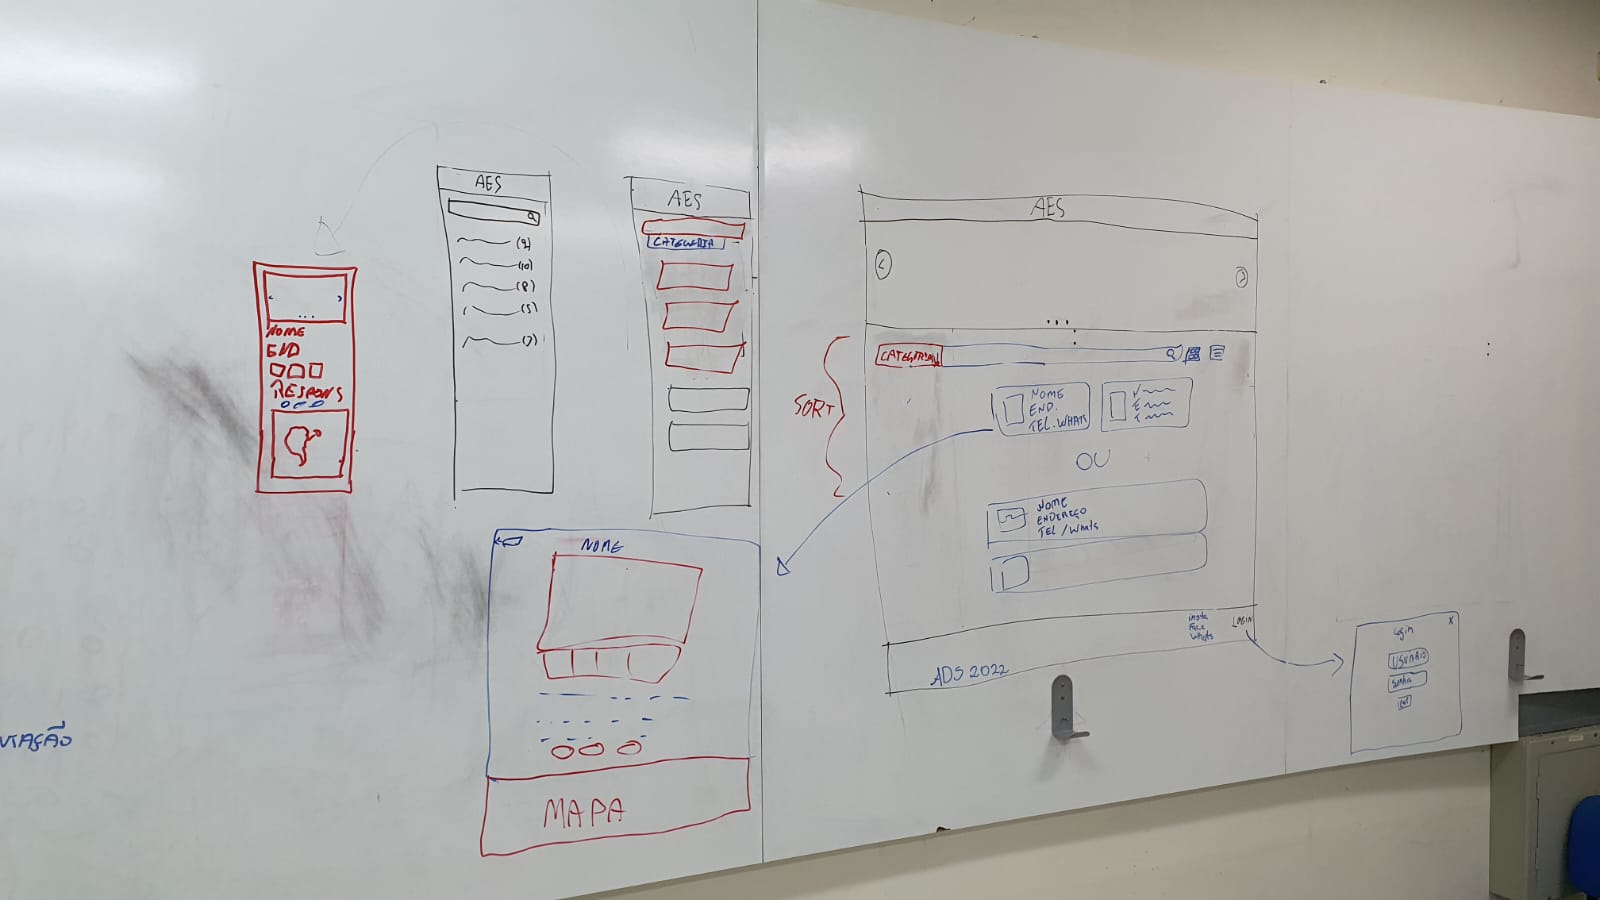 NOME
END
RESPONS
AES
(9)
(10)
(8)
(5)
(7)
AES
CATEGORIA
NOME
MAPA
AES
SORT
CATEGORIA
NOME
END.
TEL.WHATS
OU
NOME
ENDEREÇO
TEL/WHATS
insta
Face
Whats
LOGIN
ADS 2022
X
Login
USUARIO
SENHA